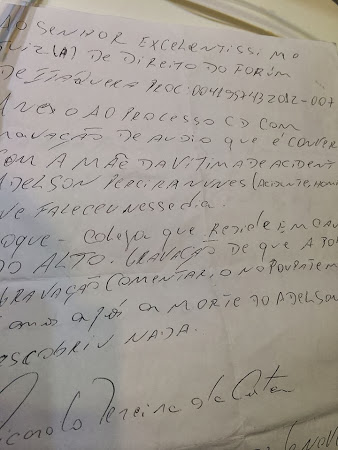 AO SENHOR EXCELENTISSIMO
JUIZ(A) DE DIREITO DO FORÚM
DE ITAQUERA PROC: 0041957432012-007
ANEXO AO PROCESSO CD COM
GRAVAÇÃO DE AUDIO QUE É CONVER
COM A MÃE DA VITIMA DE ACIDENT
ADELSON PEREIRA NUNES (ACIDENTE,
VE FALECEU NESSE DIA.
COLEGA QUE RESIDE EM
DO ALTO. GRAVAÇÃO DE QUE A
GRAVAÇÃO COMENTARIO NO
ANOS APÓS A MORTE DO ADELSON
DESCOBRIU NADA.
Pereira da